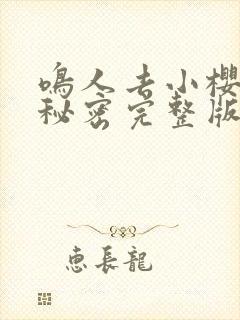 鳴人去小櫻
秘密完整版
惠長龍